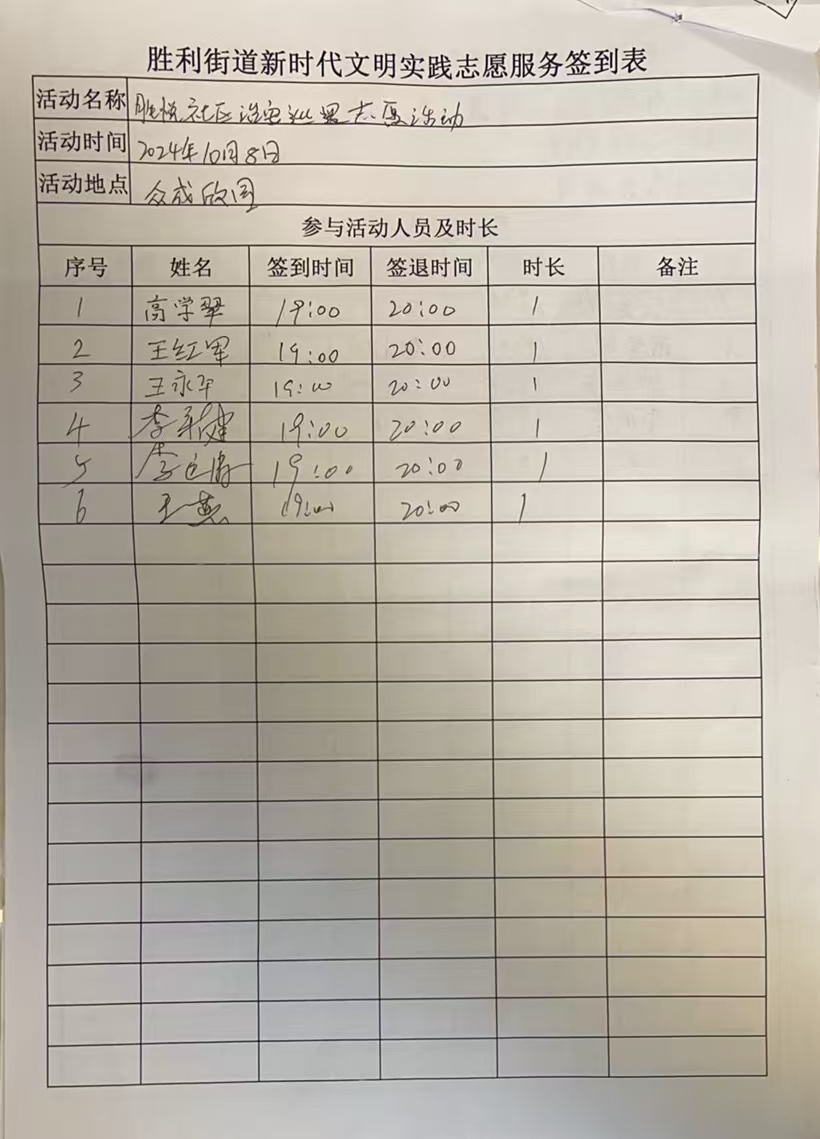 胜利街道新时代文明实践志愿服务签到表
活动名称 胜悦社区治安巡逻志愿活动
活动时间 2024年10月8日
活动地点 众成欣园
参与活动人员及时长
序号 姓名 签到时间 签退时间 时长 备注
1 高学翠 19:00 20:00 1
2 王红军 19:00 20:00 1
3 王永平 19:00 20:00 1
4 李 19:00 20:00 1
5 李 19:00 20:00 1
6 王燕 19:00 20:00 1